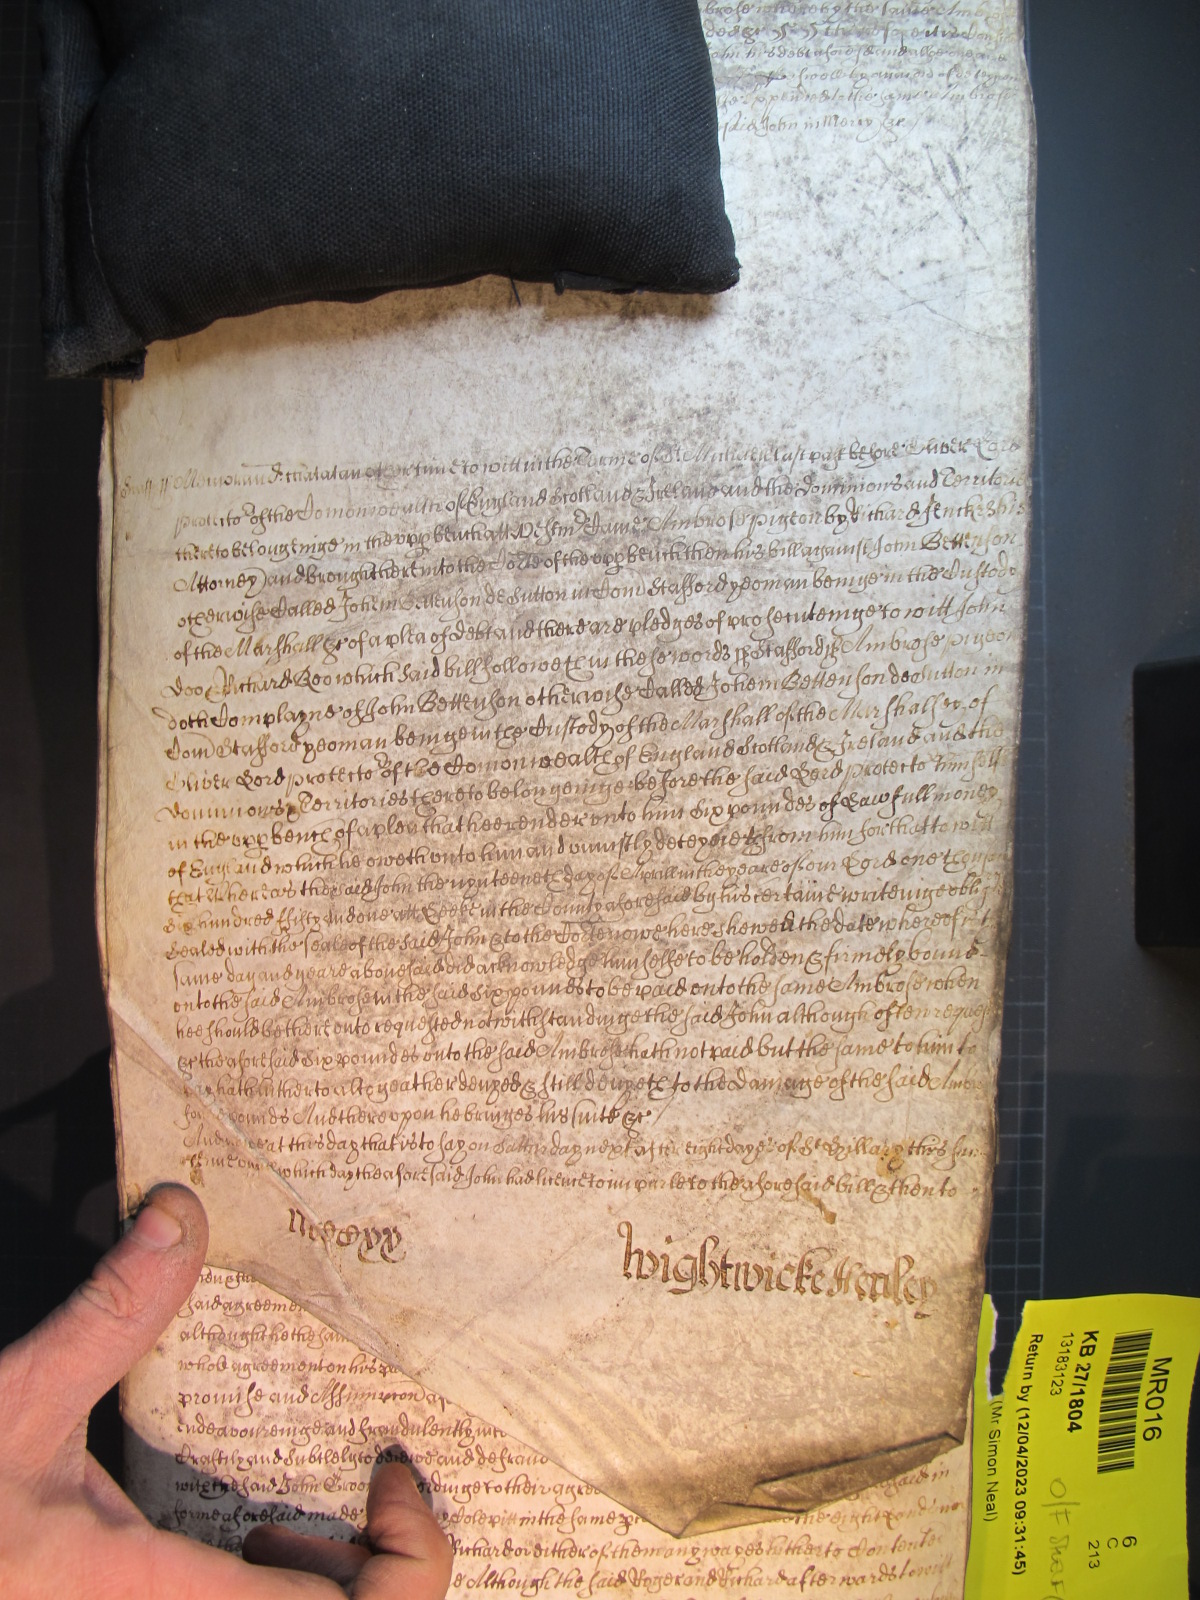 brose whereby the said Amb
John his debt aforesaid and alsoe
said John in Mercy &c
Staff ss Memorand that att an other time to witt in the Terme of St Michaell last past before Oliver Lord
Protector of the Comonwealth of England Scotland & Ireland and the Dominions and Territories
thereto belonginge in the upp bench att Westm Came Ambrose Pigeon by Richard Jenckes his
Attorney and brought here into the Corte of the upp bench then his bill against John Bettenson
otherwise Called Johem Bettenson de Sutton in Com Stafford yeoman beinge in the Custody
of the Marshall &c of a plea of debt and there are pledges of prosecuteinge to witt John
Doo & Richard Roo which said bill followeth in these words ss Stafford ss Ambrose Pigeon
doth Complayne of John Bettenson otherwise Called Johem Bettenson de Sutton in
Com Stafford yeoman beinge in the Custody of the Marshall of the Marshalsey of
Oliver Lord Protector of the Comonwealth of England Scotland & Ireland and the
Dominions & Territories thereto belonginge before the said Lord Protector himselfe
in the upp bench of a plea that hee render unto him Six poundes of Lawfull money
of England which he oweth unto him and uniustly deteyneth from him for that to witt
that Whereas the said John the day of Aprill in the yeare of our Lord one thousand
six hundred fifty and one att Leeke in the County aforesaid by his certaine writeinge oblig
Sealed with the seale of the said John & to the Corte nowe here shewed the date whereof is the
same day and yeare abovesaid did acknowledge himselfe to be holden & firmely bound
unto the said Ambrose in the said Six pounds to be paid unto the same Ambrose when
hee should be thereunto requested notwithstandinge the said John although often request
&c the aforesaid Six poundes unto the said Ambrose hath not paid but the same to him to
pay hath hitherto altogeather denyed & still denyeth to the damage of the said Ambr
pounds And thereupon he bringes his suite &c
And att this day that is to say on Satturday next after eight dayes of St Hillary this same
Terme untill which day the aforesaid John had licence to imparle to the aforesaid bill & then to
Wightwicke Henley
said agreement
although he the said
whole agreement on his
promise and Assumpcon
endeavoureinge and fraudulently int
Craftily and Subtlely to deceive and defraud
with the said John Croo ordinge to their agree
forme aforesaid made in the same the eight pounds
Richard or either of them any wayes hitherto Contente
Although the said Roger and Richard afterwards to witt
MR016
KB 27/1804
13183123
Return by (12/04/2023 09:31:45)
(Mr Simon Neal)
6
C
213